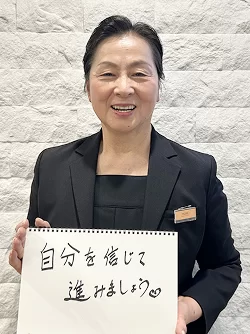 自分を信じて
進みましょう♡